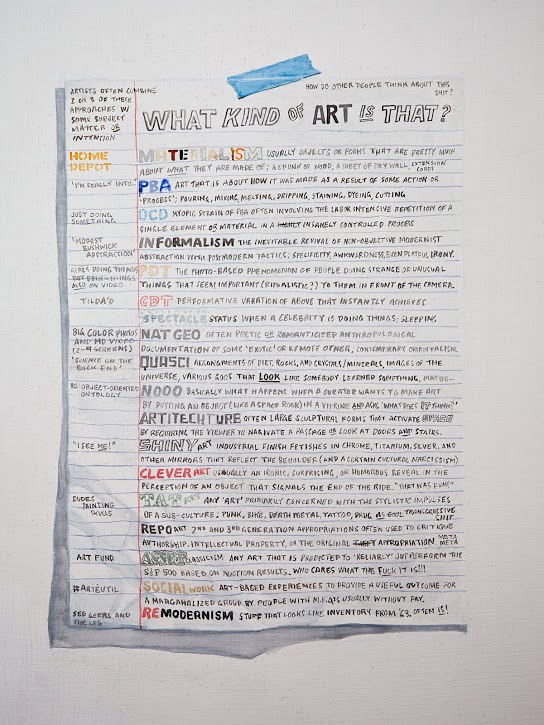 ARTISTS OFTEN COMBINE
2 OR 3 OF THESE
APPROACHES W/
SOME SUBJECT
MATTER OR
INTENTION
HOW DO OTHER PEOPLE THINK ABOUT THIS
SHIT?
WHAT KIND OF ART IS THAT?
HOME DEPOT
MATERIALISM USUALLY OBJECTS OR FORMS THAT ARE PRETTY MUCH
ABOUT WHAT THEY ARE MADE OF; A CHUNK OF WOOD, A SHEET OF DRY WALL, EXTENSION CORDS
"I'M REALLY INTO-
PBA ART THAT IS ABOUT HOW IT WAS MADE AS A RESULT OF SOME ACTION OR
'PROCESS'; POURING, MIXING, MELTING, DRIPPING, STAINING, DYEING, CUTTING
JUST DOING SOMETHING
OCD MYOPIC STRAIN OF PBA OFTEN INVOLVING THE LABOR INTENSIVE REPETITION OF A
SINGLE ELEMENT OR MATERIAL IN A INSANELY CONTROLLED PROCESS
"MODEST BUSHWICK ABSTRACTION"
INFORMALISM THE INEVITABLE REVIVAL OF NON-OBJECTIVE MODERNIST
ABSTRACTION WITH POSTMODERN TACTICS; SPECIFICITY, AWKWARDNESS, EVEN PLAYFUL IRONY.
GIRLS DOING THINGS
BOY DOING THINGS
ALSO ON VIDEO
PDT THE PHOTO-BASED PHENOMENON OF PEOPLE DOING STRANGE OR UNUSUAL
THINGS THAT SEEM IMPORTANT (RITUALISTIC?) TO THEM IN FRONT OF THE CAMERA.
TILDA'D
CDT PERFORMATIVE VARATION OF ABOVE THAT INSTANTLY ACHIEVES
SPECTACLE STATUS WHEN A CELEBRITY IS DOING THINGS; SLEEPING
BIG COLOR PHOTOS
AND HD VIDEO
(2-9 SCREENS)
NAT GEO OFTEN POETIC OR ROMANTICIZED ANTHROPOLOGICAL
DOCUMENTATION OF SOME 'EXOTIC' OR REMOTE OTHER, CONTEMPORARY ORIENTALISM.
"SCIENCE ON THE BACK END"
QUASCI ARRANGMENTS OF DIRT, ROCKS, AND CRYSTALS/MINERALS, IMAGES OF THE
UNIVERSE, VARIOUS GOOS THAT LOOK LIKE SOMEBODY LEARNED SOMETHING, MAYBE-
RE: OBJECT-ORIENTED ONTOLOGY
NOOO BASICALLY WHAT HAPPENS WHEN A CURATOR WANTS TO MAKE ART
BY PUTTING AN OBJECT (LIKE A SPACE ROCK) IN A VITRINE AND ASKS, 'WHAT DOES IT THINK?'
ARTITECHTURE OFTEN LARGE SCULPTURAL FORMS THAT ACTIVATE SPACE
BY REQUIRING THE VIEWER TO NAVIGATE A PASSAGE OR LOOK AT DOORS AND STAIRS.
"I SEE ME!"
SHINY ART INDUSTRIAL FINISH FETISHES IN CHROME, TITANIUM, SILVER, AND
OTHER MIRRORS THAT REFLECT THE BEHOLDER (AND A CERTAIN CULTURAL NARCISSISM)
CLEVER ART USUALLY AN IRONIC, SURPRISING, OR HUMOROUS REVEAL IN THE
PERCEPTION OF AN OBJECT THAT SIGNALS THE END OF THE RIDE. "THAT WAS FUN!"
DUDES PAINTING SKULLS
TAT ART ANY 'ART' PRIMARILY CONCERNED WITH THE STYLISTIC IMPULSES
OF A SUB-CULTURE; PUNK, BIKE, DEATH METAL, TATTOO, DRUG, AS COOL TRANSGRESSIVE SHIT.
REPO ART 2ND AND 3RD GENERATION APPROPRIATIONS OFTEN USED TO CRITIQUE
AUTHORSHIP, INTELLECTUAL PROPERTY, OR THE ORIGINAL THEFT APPROPRIATION META META
ART FUND
CLASSICISM ANY ART THAT IS PREDICTED TO 'RELIABLY' OUTPERFORM THE
S&P 500 BASED ON AUCTION RESULTS. WHO CARES WHAT THE FUCK IT IS!!!
#ARTEUTIL
SOCIAL WORK ART-BASED EXPERIENCES TO PROVIDE A USEFUL OUTCOME FOR
A MARGANALIZED GROUP BY PEOPLE WITH M.F.A.S USUALLY WITHOUT PAY.
SEO GEERS AND
REMODERNISM STUFF THAT LOOKS LIKE INVENTORY FROM '63, OFTEN IS!